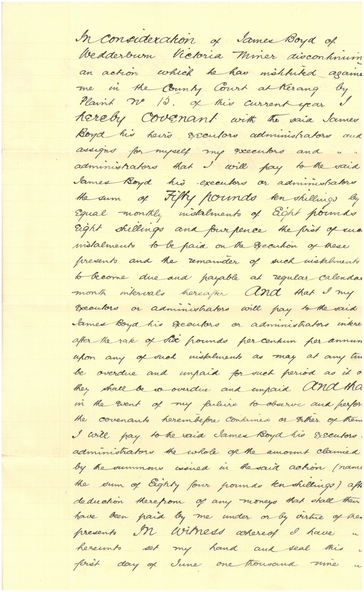 In Consideration of James Boyd of
Wedderburn Victoria Miner discontinuing
an action which he has instituted against
me in the County Court at Kerang by
Plaint No 13. of this current year I
hereby Covenant with the said James
Boyd his heirs executors administrators and
assigns for myself my executors and " "
administrators that I will pay to the said
James Boyd his executors or administrators
the sum of Fifty pounds ten shillings by
Equal monthly instalments of Eight pounds
Eight shillings and fourpence the first of such
instalments to be paid on the execution of these
presents and the remainder of such instalments
to become due and payable at regular calendar
month intervals hereafter And that I my
executors or administrators will pay to the said
James Boyd his executors or administrators interest
after the rate of Six pounds per centum per annum
upon any of such instalments as may at any time
be overdue and unpaid for such period as it or
they shall be so overdue and unpaid And that
in the event of my failure to observe and perform
the covenants hereinbefore contained or either of them
I will pay to the said James Boyd his executors
administrators the whole of the amount claimed
by the summons issued in the said action (namely
the sum of Eighty four pounds ten shillings) after
deduction therefrom of any moneys that shall then
have been paid by me under or by virtue of these
presents In Witness whereof I have "
hereunto set my hand and seal this "
first day of June one thousand nine "